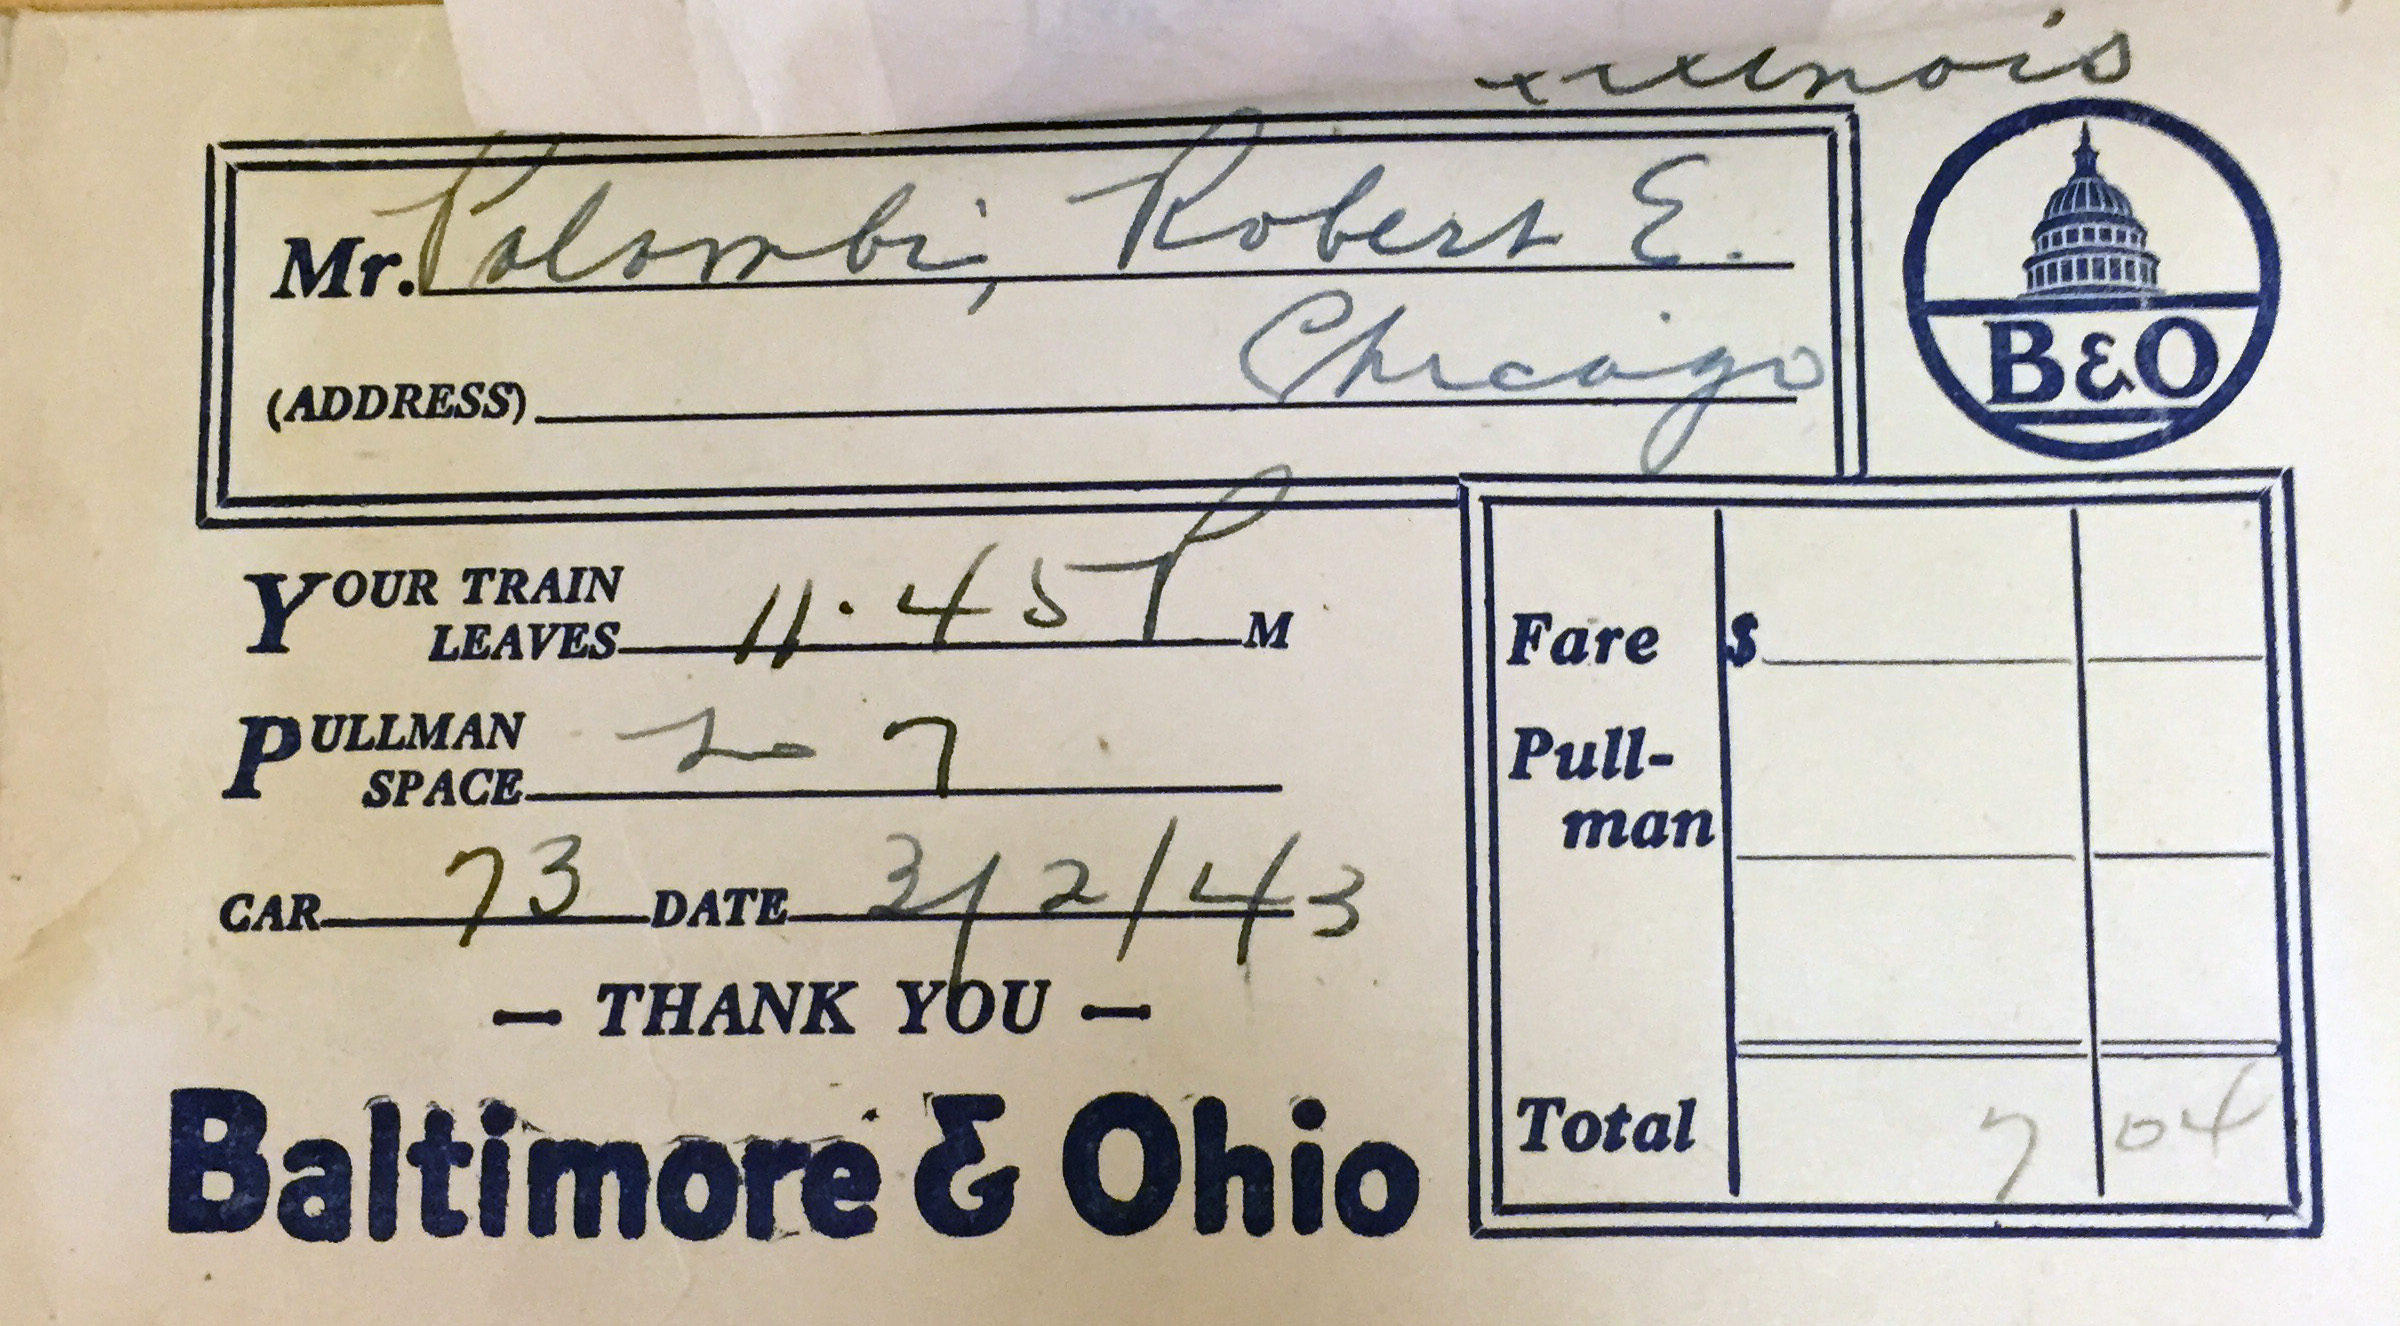 Illinois
Mr. Palombi, Robert E.
Chicago
(ADDRESS)
B&O
YOUR TRAIN LEAVES 11.45 P M
PULLMAN SPACE Lo 7
CAR 73 DATE 3/2/43
— THANK YOU —
Baltimore & Ohio
Fare $
Pull-
man
Total 7 04